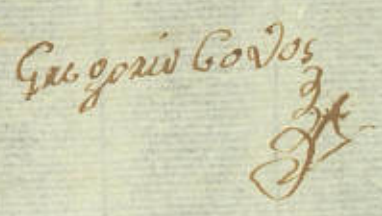 Gregorio Cobos